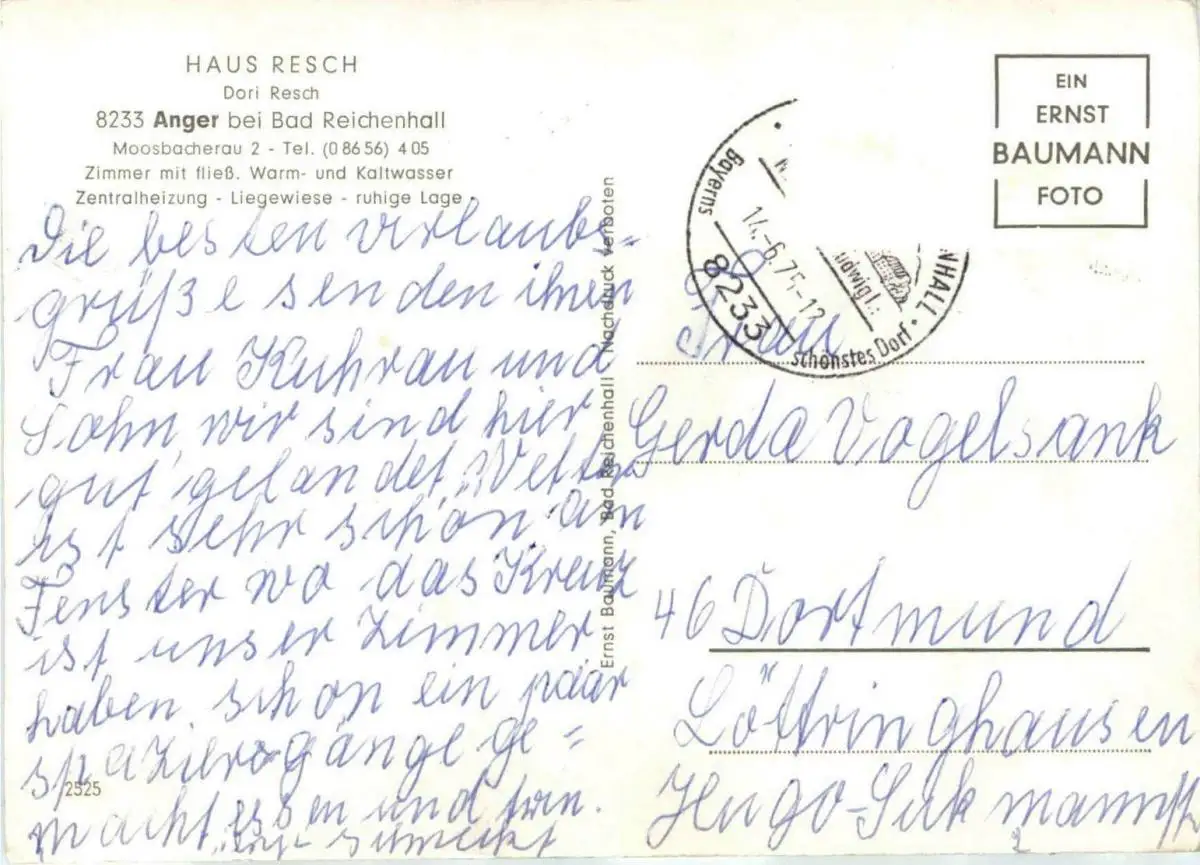 HAUS RESCH
Dori Resch
8233 Anger bei Bad Reichenhall
Moosbacherau 2 - Tel. (0 86 56) 4 05
Zimmer mit fließ. Warm- und Kaltwasser
Zentralheizung - Liegewiese - ruhige Lage
Die besten Urlaubs-
grüße senden ihnen
Frau Kuhrau und
Sohn, wir sind hier
gut gelandet, Wetter
ist sehr schön am
Fenster wo das Kreuz
ist unser Zimmer
haben schon ein paar
spaziergänge ge=
macht, essen und trin.
schmeckt
2525
Ernst Baumann, Bad Reichenhall Nachdruck verboten
EIN
ERNST
BAUMANN
FOTO
Bayerns
14.-6.75-12
8233
udwig I.:
schönstes Dorf
NHALL
Frau
Gerda Vogelsank
46 Dortmund
Löttringhausen